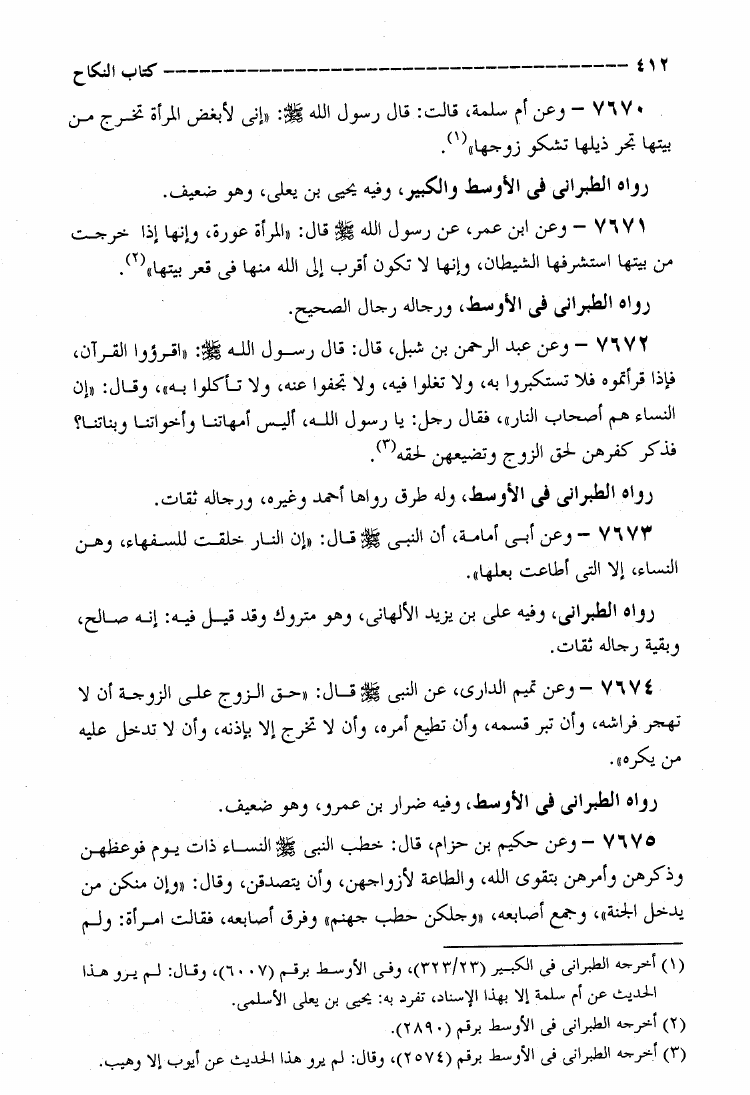 ٤١٢ ---------------------------------------- كتاب النكاح
٧٦٧٠ – وعن أم سلمة، قالت: قال رسول الله ﷺ: «إنى لأبغض المرأة تخرج من
بيتها تجر ذيلها تشكو زوجها»(١).
رواه الطبرانى فى الأوسط والكبير، وفيه يحيى بن يعلى، وهو ضعيف.
٧٦٧١ – وعن ابن عمر، عن رسول الله ﷺ قال: «المرأة عورة، وإنها إذا خرجت
من بيتها استشرفها الشيطان، وإنها لا تكون أقرب إلى الله منها فى قعر بيتها»(٢).
رواه الطبرانى فى الأوسط، ورجاله رجال الصحيح.
٧٦٧٢ – وعن عبد الرحمن بن شبل، قال: قال رسول الله ﷺ: «اقرؤوا القرآن،
فإذا قرأتموه فلا تستكبروا به، ولا تغلوا فيه، ولا تجفوا عنه، ولا تأكلوا به»، وقال: «إن
النساء هم أصحاب النار»، فقال رجل: يا رسول الله، أليس أمهاتنا وأخواتنا وبناتنا؟
فذكر كفرهن لحق الزوج وتضيعهن لحقه(٣).
رواه الطبرانى فى الأوسط، وله طرق رواها أحمد وغيره، ورجاله ثقات.
٧٦٧٣ – وعن أبى أمامة، أن النبى ﷺ قال: «إن النار خلقت للسفهاء، وهن
النساء، إلا التى أطاعت بعلها».
رواه الطبرانى، وفيه على بن يزيد الألهانى، وهو متروك وقد قيل فيه: إنه صالح،
وبقية رجاله ثقات.
٧٦٧٤ – وعن تميم الدارى، عن النبى ﷺ قال: «حق الزوج على الزوجة أن لا
تهجر فراشه، وأن تبر قسمه، وأن تطيع أمره، وأن لا تخرج إلا بإذنه، وأن لا تدخل عليه
من يكره».
رواه الطبرانى فى الأوسط، وفيه ضرار بن عمرو، وهو ضعيف.
٧٦٧٥ – وعن حكيم بن حزام، قال: خطب النبى ﷺ النساء ذات يوم فوعظهن
وذكرهن وأمرهن بتقوى الله، والطاعة لأزواجهن، وأن يتصدقن، وقال: «وإن منكن من
يدخل الجنة»، وجمع أصابعه، «وجلكن حطب جهنم» وفرق أصابعه، فقالت امرأة: ولم
(١) أخرجه الطبرانى فى الكبير (٣٢٣/٢٣)، وفى الأوسط برقم (٦٠٠٧)، وقال: لم يرو هذا
الحديث عن أم سلمة إلا بهذا الإسناد، تفرد به: يحيى بن يعلى الأسلمى.
(٢) أخرجه الطبرانى فى الأوسط برقم (٢٨٩٠).
(٣) أخرجه الطبرانى فى الأوسط برقم (٢٥٧٤)، وقال: لم يرو هذا الحديث عن أيوب إلا وهيب.